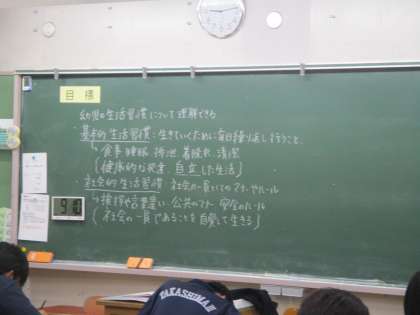 目標
幼児の生活習慣について理解できる
基本的生活習慣:生きていくために毎日繰り返し行うこと
↳食事 睡眠 排泄 着脱衣 清潔
(健康的な発育、自立した生活)
社会的生活習慣 社会の一員としてのマナーやルール
↳挨拶や言葉遣い、公共のマナー 安全のルール
(社会の一員であることを自覚して生きる)
TAKASHIMA